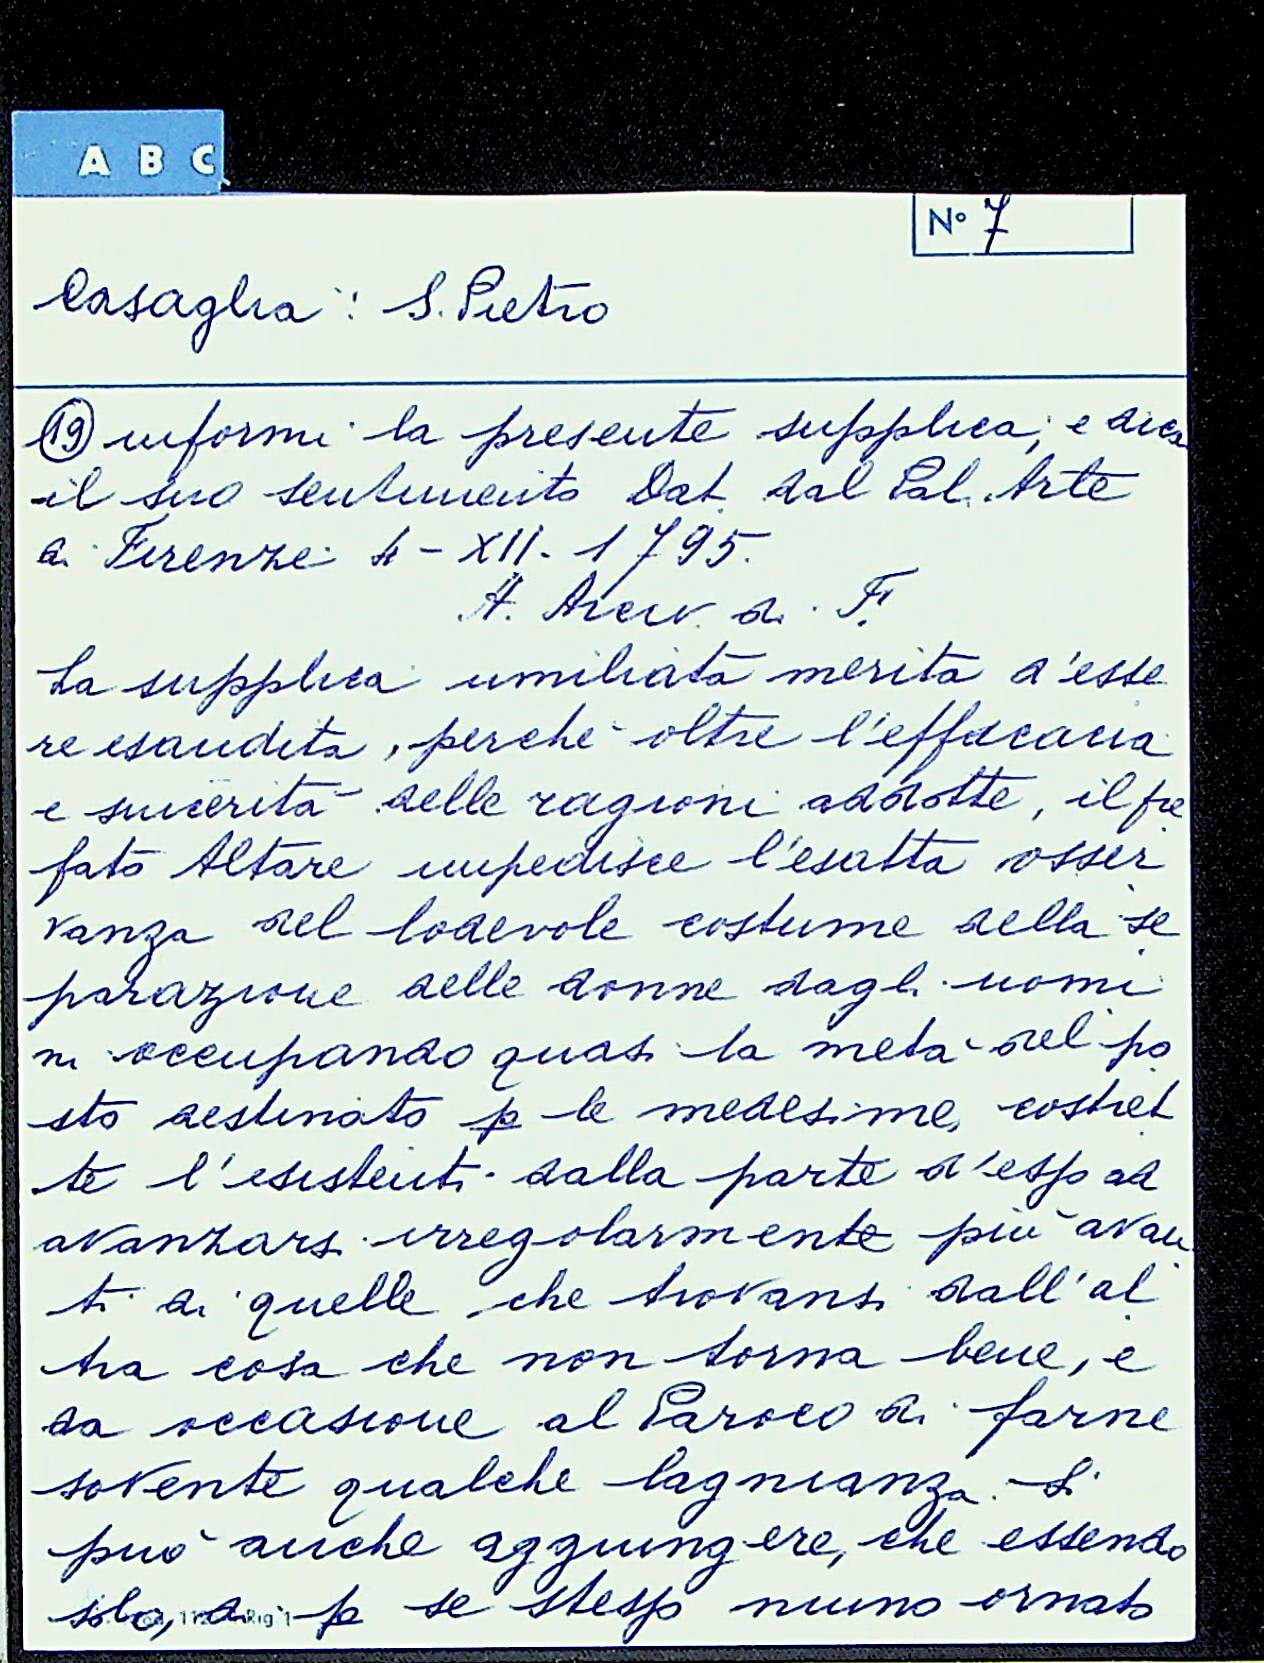 A B C
N° 7
Casaglia: S. Pietro
(19) informi la presente supplica; e dica
il suo sentimento Dat. dal Pal. Arte
di Firenze 4-XII-1795.
A. Arciv. di F.
La supplica umiliata merita d'esse
re esaudita, perchè oltre l'efficacia
e sincerità delle ragioni addotte, il pre
fato Altare impedisce l'esatta osser
vanza del lodevole costume della se
parazione delle donne dagli uomi
ni occupando quasi la metà del po
sto destinato p le medesime, costret
te l'esistenti dalla parte d'esso ad
avanzarsi irregolarmente più avan
ti di quelle che trovansi dall'al
tra cosa che non torna bene, e
da occasione al Paroco di farne
sovente qualche lagnianza. Si
può anche aggiungere, che essendo
solo, di p se stesso niuno ornato